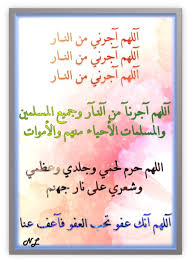 اللهم آجرني من النـار
اللهم آجرني من النـار
اللهم آجرني من النـار
اللهم آجرنآ من النآر وجميع المسلمين
والمسلمات الأحياء منهم والأموات
اللهم حرم لحمي وجلدي وعظمي
وشعري على نار جهنم
اللهم آنك عفو تحب العفو فآعف عنا
NL